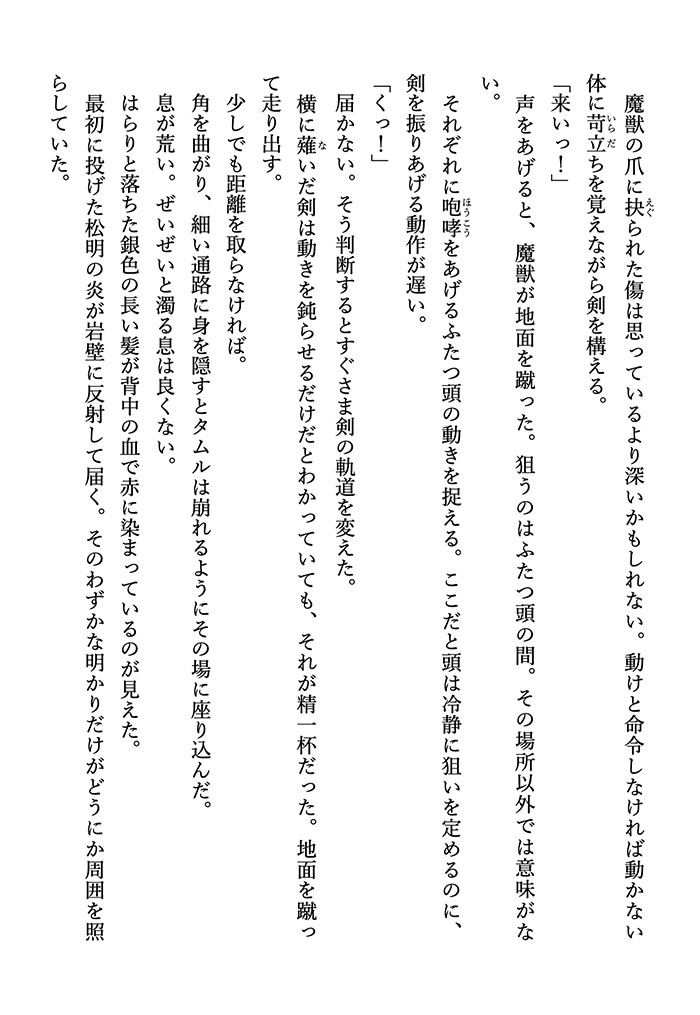 魔獣の爪に抉られた傷は思っているより深いかもしれない。動けと命令しなければ動かない
体に苛立ちを覚えながら剣を構える。
「来いっ！」
声をあげると、魔獣が地面を蹴った。狙うのはふたつ頭の間。その場所以外では意味がな
い。
それぞれに咆哮をあげるふたつ頭の動きを捉える。ここだと頭は冷静に狙いを定めるのに、
剣を振りあげる動作が遅い。
「くっ！」
届かない。そう判断するとすぐさま剣の軌道を変えた。
横に薙いだ剣は動きを鈍らせるだけだとわかっていても、それが精一杯だった。地面を蹴っ
て走り出す。
少しでも距離を取らなければ。
角を曲がり、細い通路に身を隠すとタムルは崩れるようにその場に座り込んだ。
息が荒い。ぜいぜいと濁る息は良くない。
はらりと落ちた銀色の長い髪が背中の血で赤に染まっているのが見えた。
最初に投げた松明の炎が岩壁に反射して届く。そのわずかな明かりだけがどうにか周囲を照
らしていた。